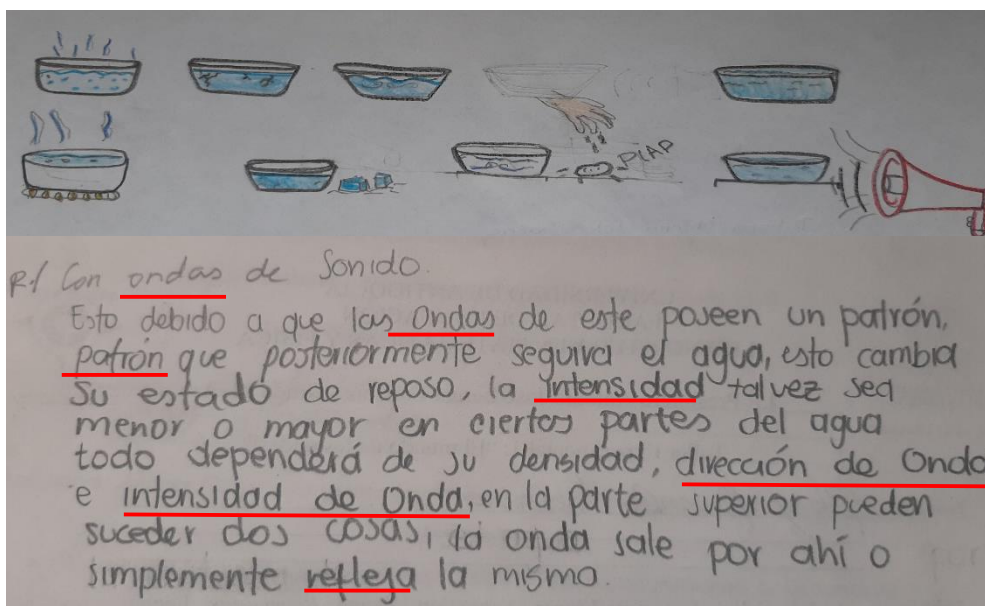 PLAP
R./ Con ondas de Sonido.
Esto debido a que las Ondas de este poseen un patrón,
patrón que posteriormente seguira el agua, esto cambia
su estado de reposo, la intensidad talvez sea
menor o mayor en ciertos partes del agua
todo dependerá de su densidad, dirección de Onda
e intensidad de Onda, en la parte superior pueden
suceder dos cosas, la onda sale por ahí o
simplemente refleja la mismo.